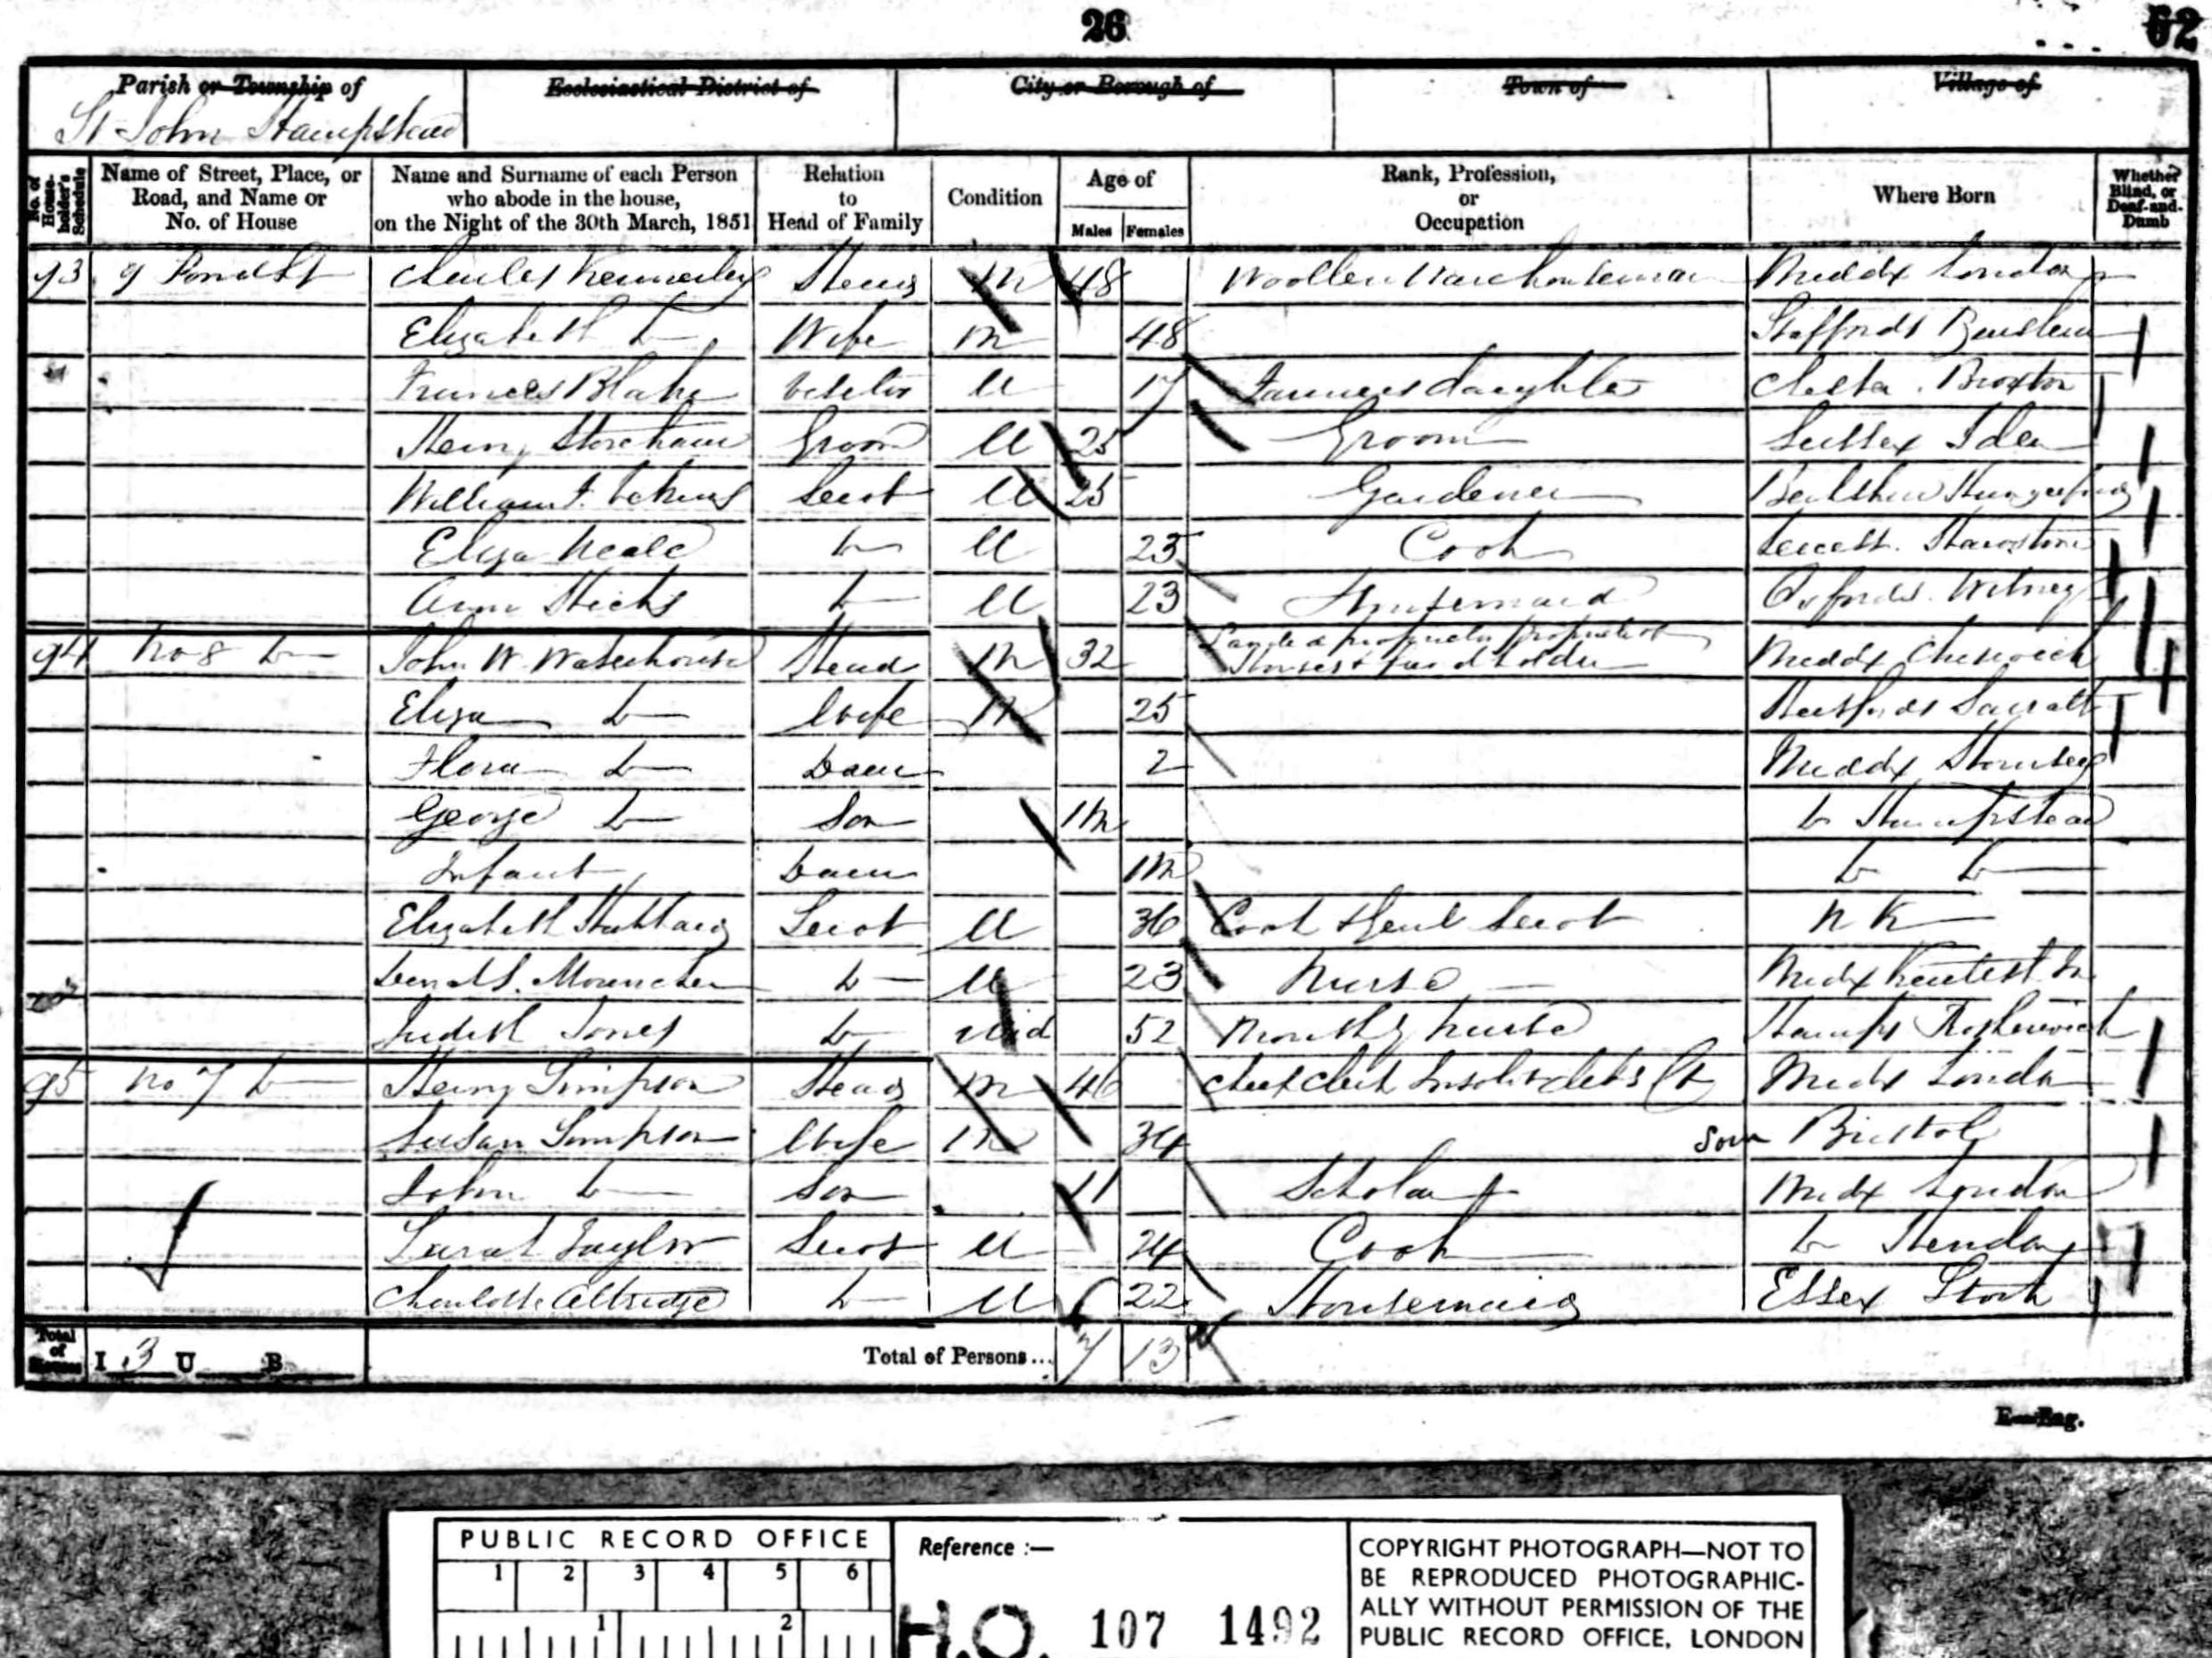 26
62
Parish or Township of
Ecclesiastical District of
City or Borough of
Town of
Village of
St John Hampstead
No. of House-holder's Schedule
Name of Street, Place, or Road, and Name or No. of House
Name and Surname of each Person who abode in the house, on the Night of the 30th March, 1851
Relation to Head of Family
Condition
Age of
Males
Females
Rank, Profession, or Occupation
Where Born
Whether Blind, or Deaf-and-Dumb
93 9 Pond St Charles Kennerley Head M 48 Woollen Warehouseman Middx London
Elizabeth Do Wife M 48 Staffords
Frances Blake Visitor U 17 Farmers daughter Chester Broxton
Henry Groom U 25 Groom Sussex Iden
William Servt U 25 Gardener Berkshire Hungerford
Eliza Neale Do U 23 Cook Leicest.
Ann Hicks Do U 23 Housemaid Oxfords. Witney
94 No 8 Do John W. Waterhouse Head M 32 Landed proprietor proprietor of Houses & fundholder Middx Chiswick
Eliza Do Wife M 25 Hertfords Sarratt
Flora Do Daur 2 Middx Hornsey
George Do Son 1m Do Hampstead
Infant Daur 1m Do Do
Elizabeth Servt U 36 Cook & Genl Servt N K
Do U 23 Nurse Midx
Judith Jones Do Wid 52 Monthly nurse Hamps
95 No 7 Do Henry Simpson Head M 46 Chief Clerk Insolv debs Ct Midx London
Susan Simpson Wife M 34 Som Bristol
John Do Son 11 Scholar Midx London
Sarah Taylor Servt U 24 Cook Do Hendon
Charlotte Do U 22 Housemaid Essex Stock
Total of Houses I 3 U B Total of Persons... 7 13
E—Eng.
PUBLIC RECORD OFFICE
1 2 3 4 5 6
1 2
Reference :—
H.O. 107 1492
COPYRIGHT PHOTOGRAPH—NOT TO
BE REPRODUCED PHOTOGRAPHIC-
ALLY WITHOUT PERMISSION OF THE
PUBLIC RECORD OFFICE, LONDON